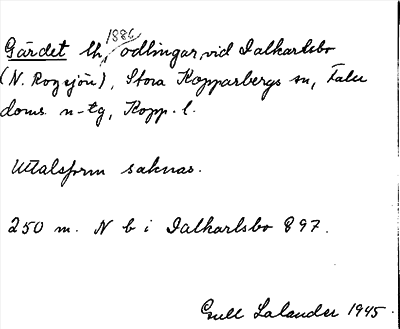 Gärdet lh, 1886 odlingar, vid Dalkarlsbo
(N. Rogsjön), Stora Kopparbergs sn, Falu
doms. n-tg, Kopp. l.
Uttalsform saknas.
250 m. N b i Dalkarlsbo 897.
Gull Salander 1945.